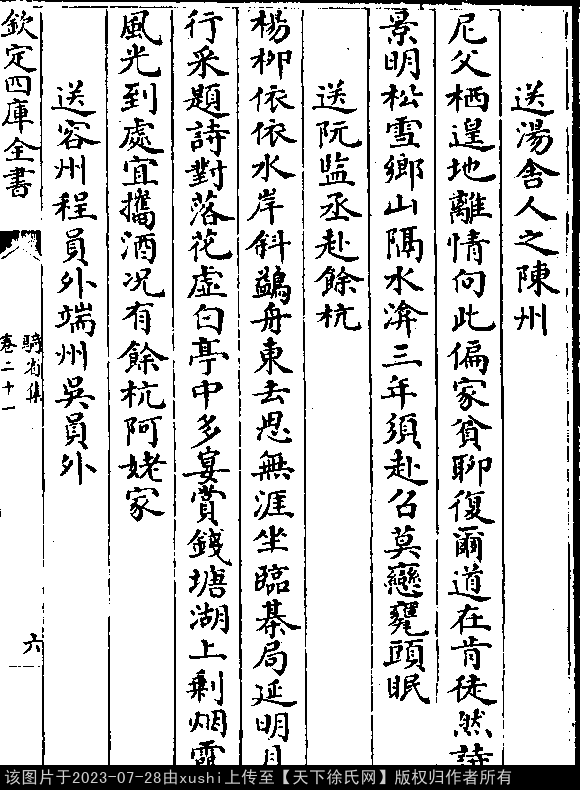 送湯舍人之陳州
尼父栖遑地離情向此偏家貧聊復爾道在肯徒然詩
景明松雪鄉山隔水三年須赴召莫戀甕頭眠
送阮監丞赴餘杭
楊柳依依水岸斜鷁舟東去思無涯坐臨棊局延明月
行采題詩對落花虛白亭中多宴賞錢塘湖上剩烟霞
風光到處宜攜酒况有餘杭阿姥家
送容州程員外端州吳員外
欽定四庫全書
騎省集
卷二十一
六
该图片于2023-07-28由xushi上传至【天下徐氏网】版权归作者所有